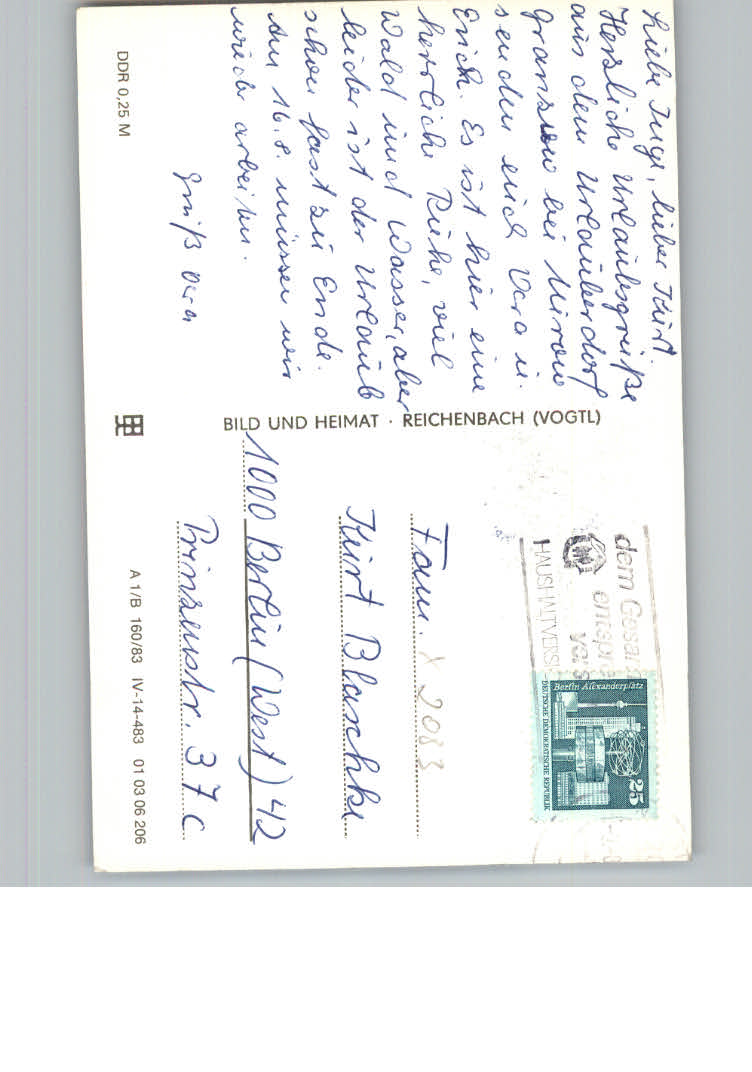 Liebe Inge, lieber Kurt.
Herzliche Urlaubsgrüße
aus dem Urlauberdorf
Granzow bei Mirow
senden euch Vera u.
Erich. Es ist hier eine
herrliche Ruhe, viel
Wald und Wasser, aber
leider ist der Urlaub
schon fast zu Ende.
Am 16.8. müssen wir
wieder arbeiten.
Gruß Vera
DDR 0,25 M
BILD UND HEIMAT · REICHENBACH (VOGTL)
dem Gesam
entspre
vers
HAUSHALTVERSI
Berlin Alexanderplatz
25
DEUTSCHE DEMOKRATISCHE REPUBLIK
Fam. X 2083
Kurt Blaschke
1000 Berlin (West) 42
Prinzenstr. 37c
A 1/B 160/83 IV-14-483 01 03 06 206